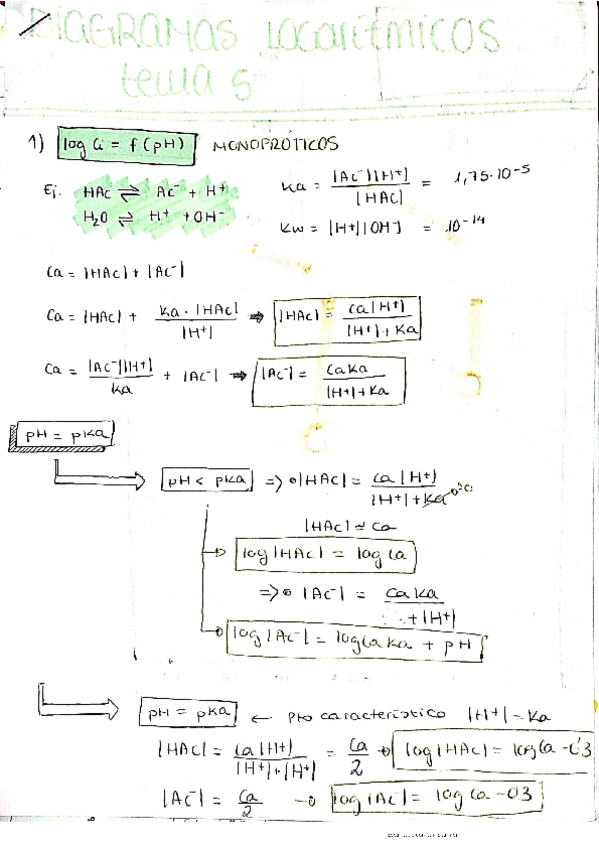 DIAGRAMAS LOGARÍTMICOS
tema 5
1) log Ci = f(pH) MONOPRÓTICOS
Ej. HAc ⇌ Ac⁻ + H⁺ Ka = |Ac⁻||H⁺| / |HAc| = 1,75·10⁻⁵
H₂O ⇌ H⁺ + OH⁻ Kw = |H⁺||OH⁻| = 10⁻¹⁴
Ca = |HAc| + |Ac⁻|
Ca = |HAc| + Ka·|HAc| / |H⁺| ⇒ |HAc| = Ca|H⁺| / |H⁺| + Ka
Ca = |Ac⁻||H⁺| / Ka + |Ac⁻| ⇒ |Ac⁻| = CaKa / |H⁺| + Ka
pH = pKa
pH < pKa ⇒ |HAc| = Ca|H⁺| / |H⁺| + Ka
|HAc| ≈ Ca
log |HAc| = log Ca
⇒ |Ac⁻| = CaKa / + |H⁺|
log |Ac⁻| = log CaKa + pH
pH = pKa ← pto característico |H⁺| = Ka
|HAc| = Ca|H⁺| / |H⁺|+|H⁺| = Ca / 2 → log |HAc| = log Ca - 0'3
|Ac⁻| = Ca / 2 → log |Ac⁻| = log Ca - 03